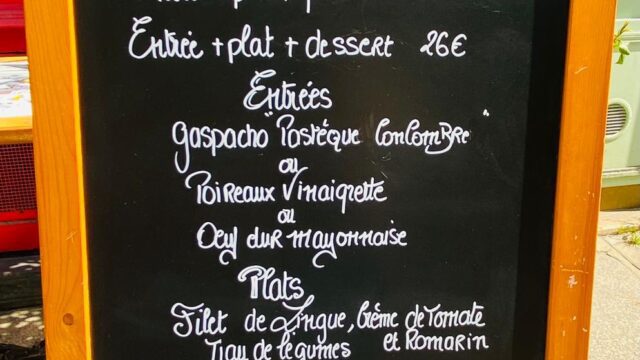 Entrée + plat + dessert 26€
Entrées
gaspacho "Pastèque Concombre"
ou
Poireaux Vinaigrette
ou
Oeuf dur mayonnaise
Plats
Filet de Lingue, Crème de Tomate
et Romarin
Tian de légumes